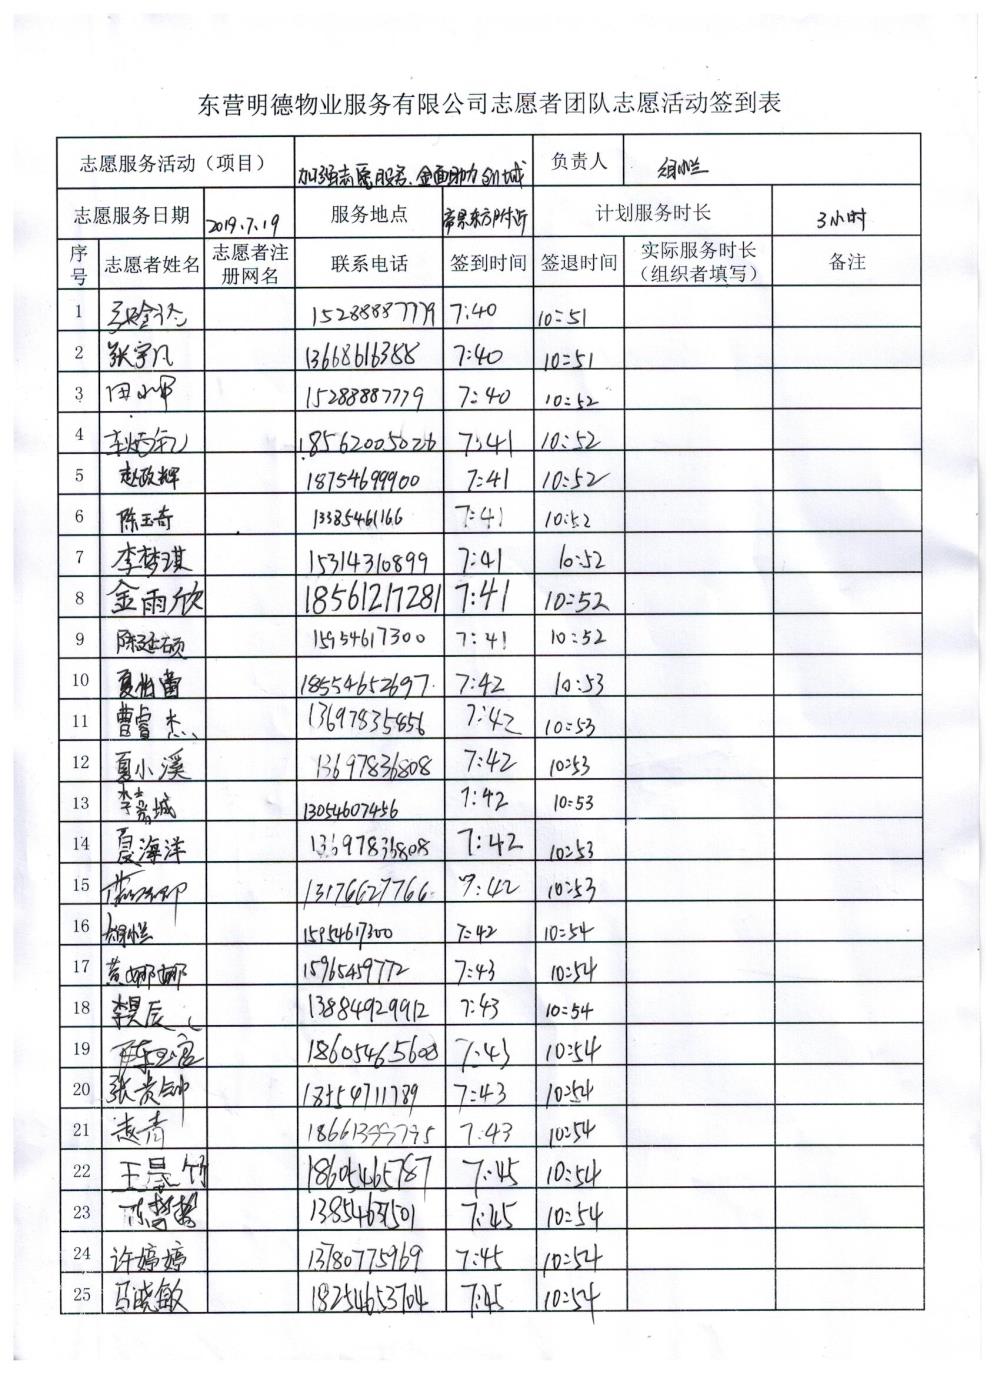 东营明德物业服务有限公司志愿者团队志愿活动签到表
志愿服务活动（项目） 加强志愿服务、全面助力创城 负责人
志愿服务日期 2019.7.19 服务地点 帝景东方附近 计划服务时长 3小时
序号 志愿者姓名 志愿者注册网名 联系电话 签到时间 签退时间 实际服务时长（组织者填写） 备注
1 15288887779 7:40 10:51
2 张宇凡 13668616388 7:40 10:51
3 田 15288887779 7:40 10:52
4 18562005026 7:41 10:52
5 赵政辉 18754699900 7:41 10:52
6 陈玉奇 13385461166 7:41 10:52
7 李梦琪 15314310899 7:41 10:52
8 金雨欣 18561217281 7:41 10:52
9 陈延硕 15954617300 7:41 10:52
10 夏怡蕾 18554652697 7:42 10:53
11 曹睿杰 13697835856 7:42 10:53
12 夏小溪 13697836808 7:42 10:53
13 李嘉城 13054607456 7:42 10:53
14 夏海洋 13697836808 7:42 10:53
15 13176627766 7:42 10:53
16 15954617300 7:42 10:54
17 黄娜娜 15965459772 7:43 10:54
18 李昊辰 13884929912 7:43 10:54
19 18605465608 7:43 10:54
20 张贵钟 18554711789 7:43 10:54
21 赵青 18661399795 7:43 10:54
22 王晨竹 18605465787 7:45 10:54
23 13854631501 7:45 10:54
24 许婷婷 13780775969 7:45 10:54
25 马晓敏 18254653704 7:45 10:54